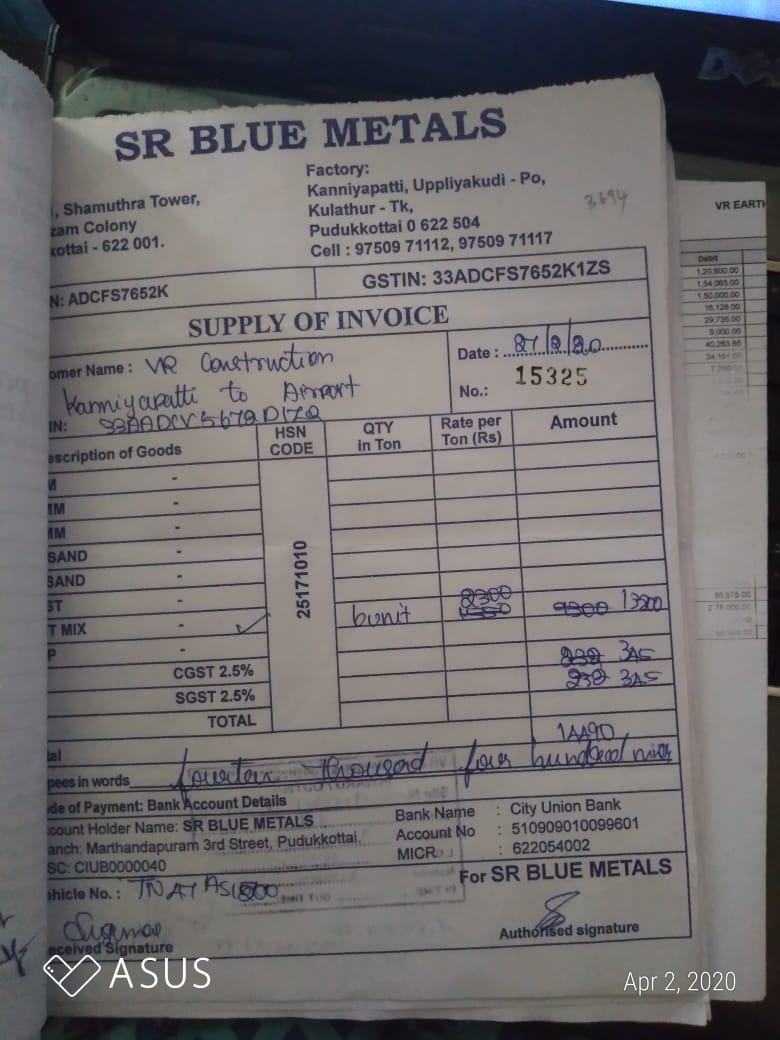 SR BLUE METALS
, Shamuthra Tower,
zam Colony
kottai - 622 001.
Factory:
Kanniyapatti, Uppliyakudi - Po,
Kulathur - Tk,
Pudukkottai 0 622 504
Cell : 97509 71112, 97509 71117
3694
N: ADCFS7652K
GSTIN: 33ADCFS7652K1ZS
SUPPLY OF INVOICE
omer Name : VR Construction
Kanniyapatti to Airport
IN: 33AADCV5672D1ZQ
Date : 27/2/20
No.: 15325
escription of Goods HSN CODE QTY in Ton Rate per Ton (Rs) Amount
M -
MM -
MM -
SAND -
SAND -
ST -
T MIX - ✓ 6unit 2300 13800
P -
25171010
CGST 2.5% 232 345
SGST 2.5% 232 345
TOTAL
tal 14490
pees in words fourteen thousand four hundred ninty
de of Payment: Bank Account Details
count Holder Name: SR BLUE METALS
anch: Marthandapuram 3rd Street, Pudukkottai.
SC: CIUB0000040
Bank Name : City Union Bank
Account No : 510909010099601
MICR : 622054002
ehicle No. : TN
For SR BLUE METALS
eceived Signature
Authorised signature
VR EARTH
Debit
1,20,600.00
1,54,065.00
1,50,000.00
16,128.00
29,736.00
9,000.00
40,283.86
ASUS
Apr 2, 2020